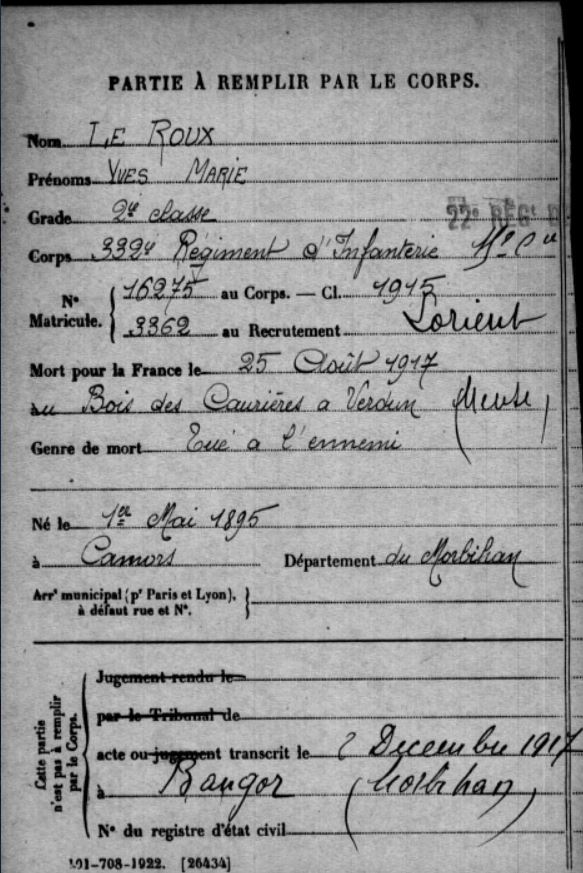 PARTIE À REMPLIR PAR LE CORPS.
Nom LE ROUX
Prénoms YVES MARIE
Grade 2e classe
22e RÉGt D
Corps 332e Régiment d'Infanterie
No Matricule. { 16275 au Corps. — Cl. 1915
3362 au Recrutement Lorient
Mort pour la France le 25 Août 1917
au Bois des Caurières a Verdun (Meuse)
Genre de mort Tué a l'ennemi
Né le 1er Mai 1895
à Camors Département du Morbihan
Arrt municipal (pr Paris et Lyon), à défaut rue et No. }
Cette partie n'est pas à remplir par le Corps.
Jugement rendu le
par le Tribunal de
acte ou jugement transcrit le 2 Decembre 1917
à Bangor (Morbihan)
No du registre d'état civil
101-708-1922. [26434]